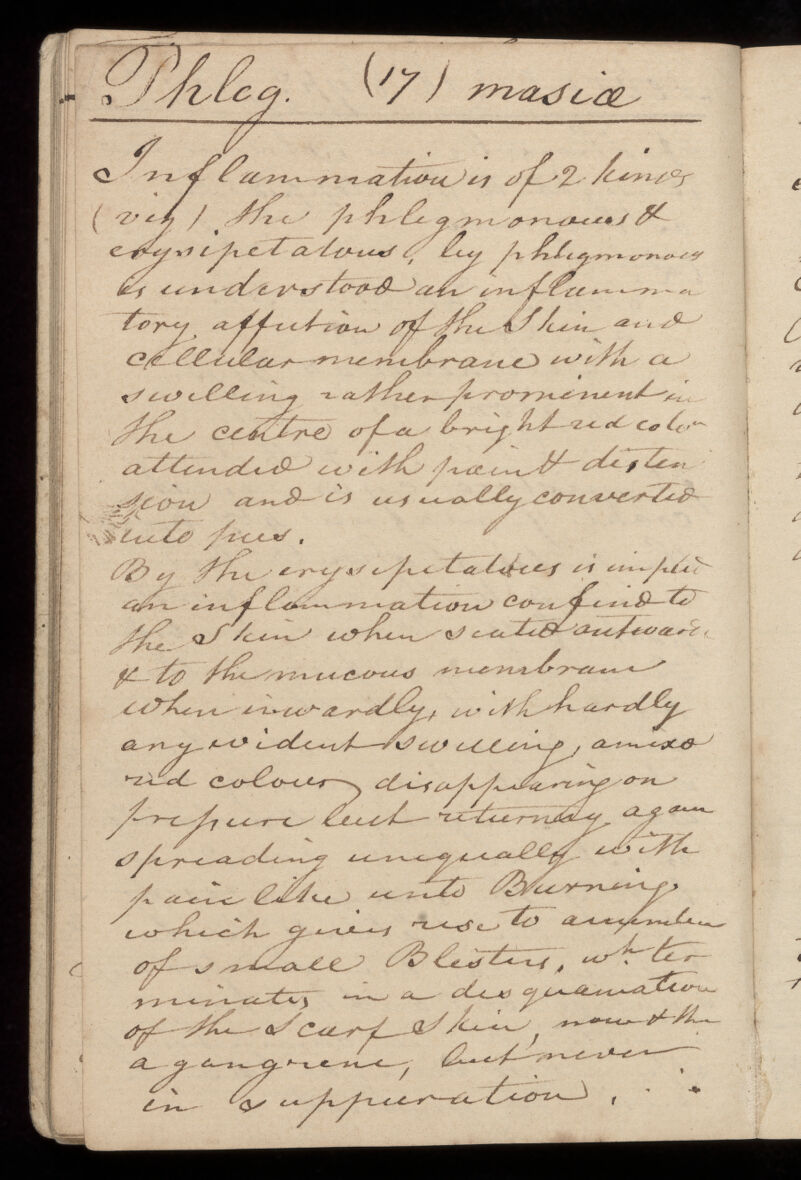 Phleg. (17) masiæ
Inflammation is of 2 kinds
(viz) the phlegmonous &
erysipetatous, by phlegmonous
is understood an inflamma
tory affection of the Skin and
cellular membrane with a
swelling rather prominent in
the centre of a bright red color
attended with pain & disten
sion and is usually converted
into pus.
By the erysipetatous is implied
an inflammation confind to
the Skin when seated outward
& to the mucous membrane
when inwardly, with hardly
any evident swelling, a mixd
red colour, disappearing on
pressure but returning again
spreading unequally with
pain like unto Burning
which gives rise to a number
of small Blisters, wh. ter
minates in a desquamation
of the Scarf Skin, now & then
a gangrene, but never
in suppuration.